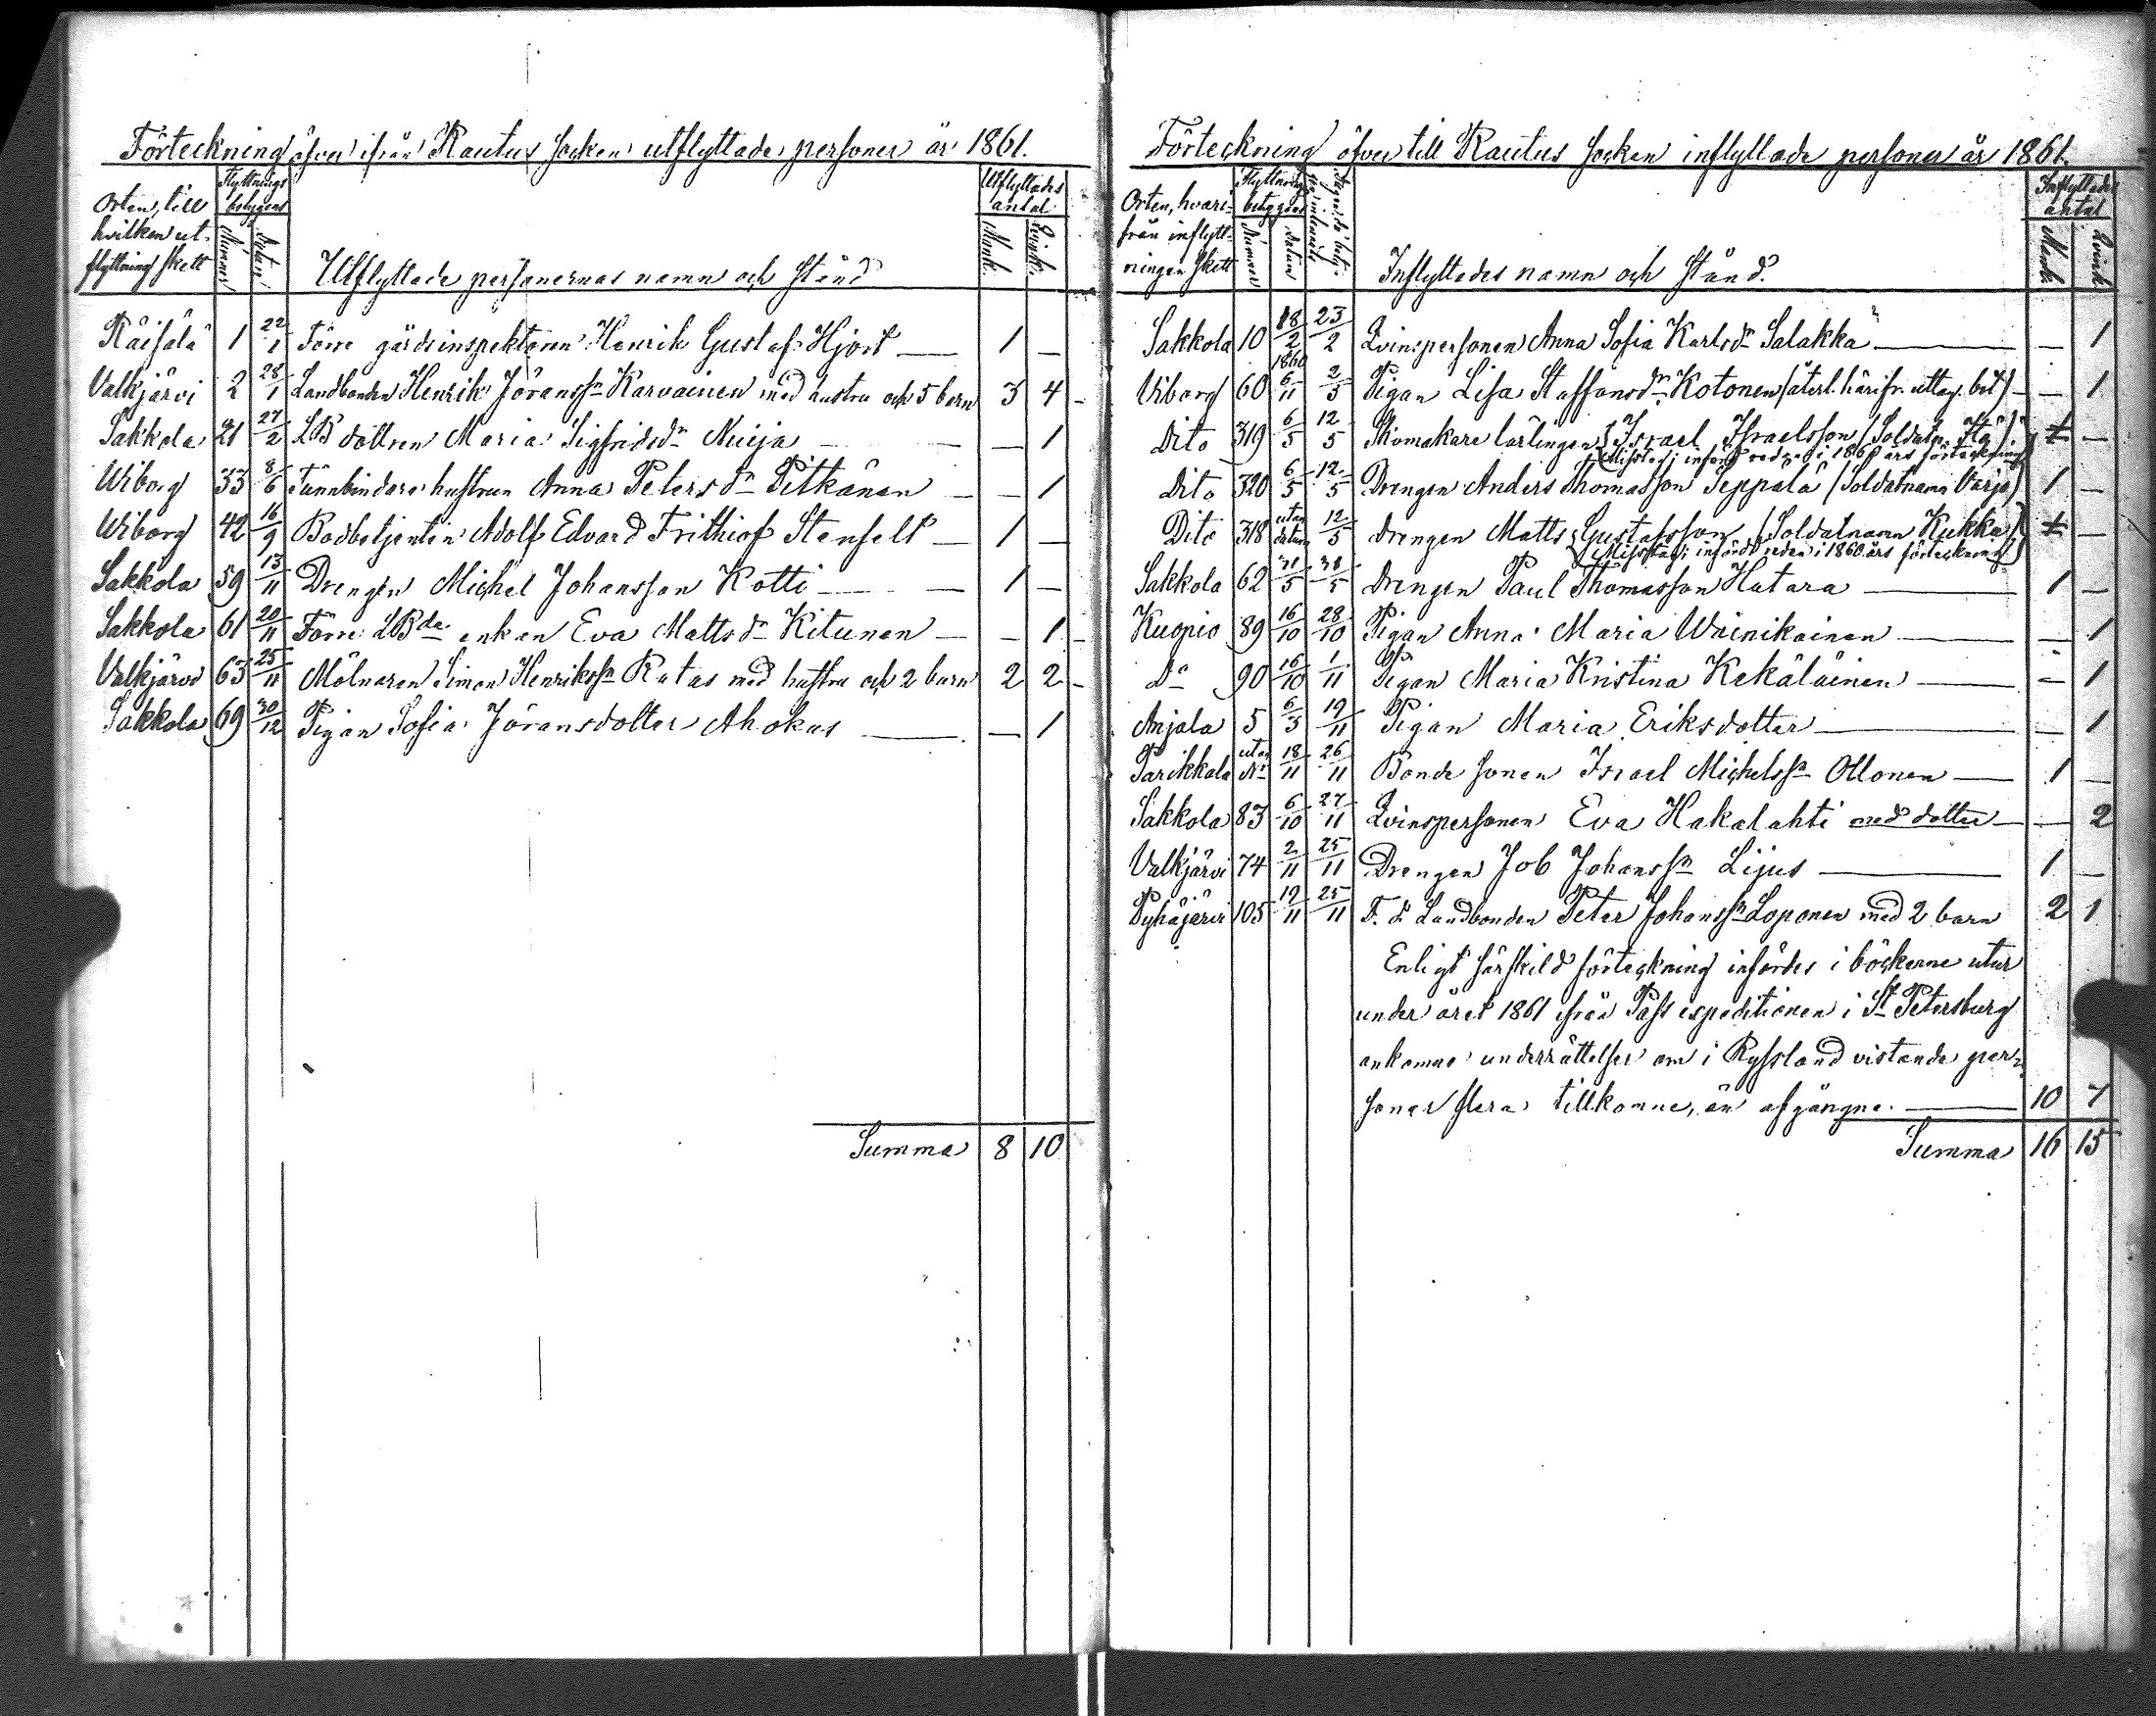 Förteckning öfver ifrån Rautus socken utflyttade personer år 1861.
Orten, till hvilken utflyttning skett
Flyttningsbetygens
Nummer
datum
Utflyttade personernas namn och stånd
Utflyttades antal
Mank.
Qvink.
Räisälä 1 22/1 Förre gårdsinspektoren Henrik Gustaf Hjort — 1 —
Valkjärvi 2 28/1 Landbonden Henrik Göransson Karvainen med hustru och 5 barn 3 4
Sakkola 21 27/2 LB dottren Maria Sigfridsdr Nuija — — 1
Wiborg 33 8/6 Tunnbindare hustrun Anna Petersdr Pitkänen — — 1
Wiborg 42 16/9 Bodbetjenten Adolf Edvard Frithiof Stenfelt — 1 —
Sakkola 59 13/11 Drengen Michel Johansson Kotti — 1 —
Sakkola 61 20/11 Förre LBde enkan Eva Mattsdr Kitunen — — 1
Valkjärvi 63 25/11 Mölnaren Simon Henrikssn Ratas med hustru och 2 barn 2 2
Sakkola 69 30/12 Pigan Sofia Göransdotter Ahokas — — 1
Summa 8 10
Förteckning öfver till Rautus socken inflyttade personer år 1861.
Orten, hvarifrån inflyttningen skett
Flyttningsbetygens
Nummer
datum
Inflyttades namn och stånd.
Inflyttades antal
Mank.
Qvink.
Sakkola 10 18/2 23/2 Qvinspersonen Anna Sofia Karlsdr Salakka — — 1
1860
Viborg 60 6/11 2/5 Pigan Lisa Staffansdr Kotonen (återl. härifr. uttag. bet) — — 1
Dito 319 6/5 12/5 Skomakare lärlingen Israel Israelsson (Soldatn. Stå) 1 —
(Misstag; införd redan i 1860 års förteckning)
Dito 320 6/5 12/5 Drengen Anders Thomasson Seppälä (Soldatnamn Värja) 1 —
Dito 318 utan datum 12/5 Drengen Matts Gustafsson (Soldatnamn Kukka) 1 —
(Misstag; införd redan i 1860 års förteckning)
Sakkola 62 31/5 31/5 Drengen Paul Thomasson Hatara — 1 —
Kuopio 89 16/10 28/10 Pigan Anna Maria Wäinikainen — — 1
Do 90 16/10 1/11 Pigan Maria Kristina Kekäläinen — — 1
Anjala 5 6/3 19/11 Pigan Maria Eriksdotter — — 1
Parikkala utan No 18/11 26/11 Bonde sonen Israel Michelssn Ollonen — 1 —
Sakkola 83 6/10 27/11 Qvinspersonen Eva Hakalahti med dotter — — 2
Valkjärvi 74 2/11 25/11 Drengen Job Johanssn Lijus — 1 —
Pyhäjärvi 105 19/11 25/11 F. d. Landbonden Peter Johanssn Loponen med 2 barn 2 1
Enligt särskild förteckning infördes i böckerne utur
under året 1861 ifrån Pass expeditionen i St Petersburg
ankomne underrättelser om i Ryssland vistande per-
soner flera tillkomne, än afgångne. — 10 7
Summa 16 15